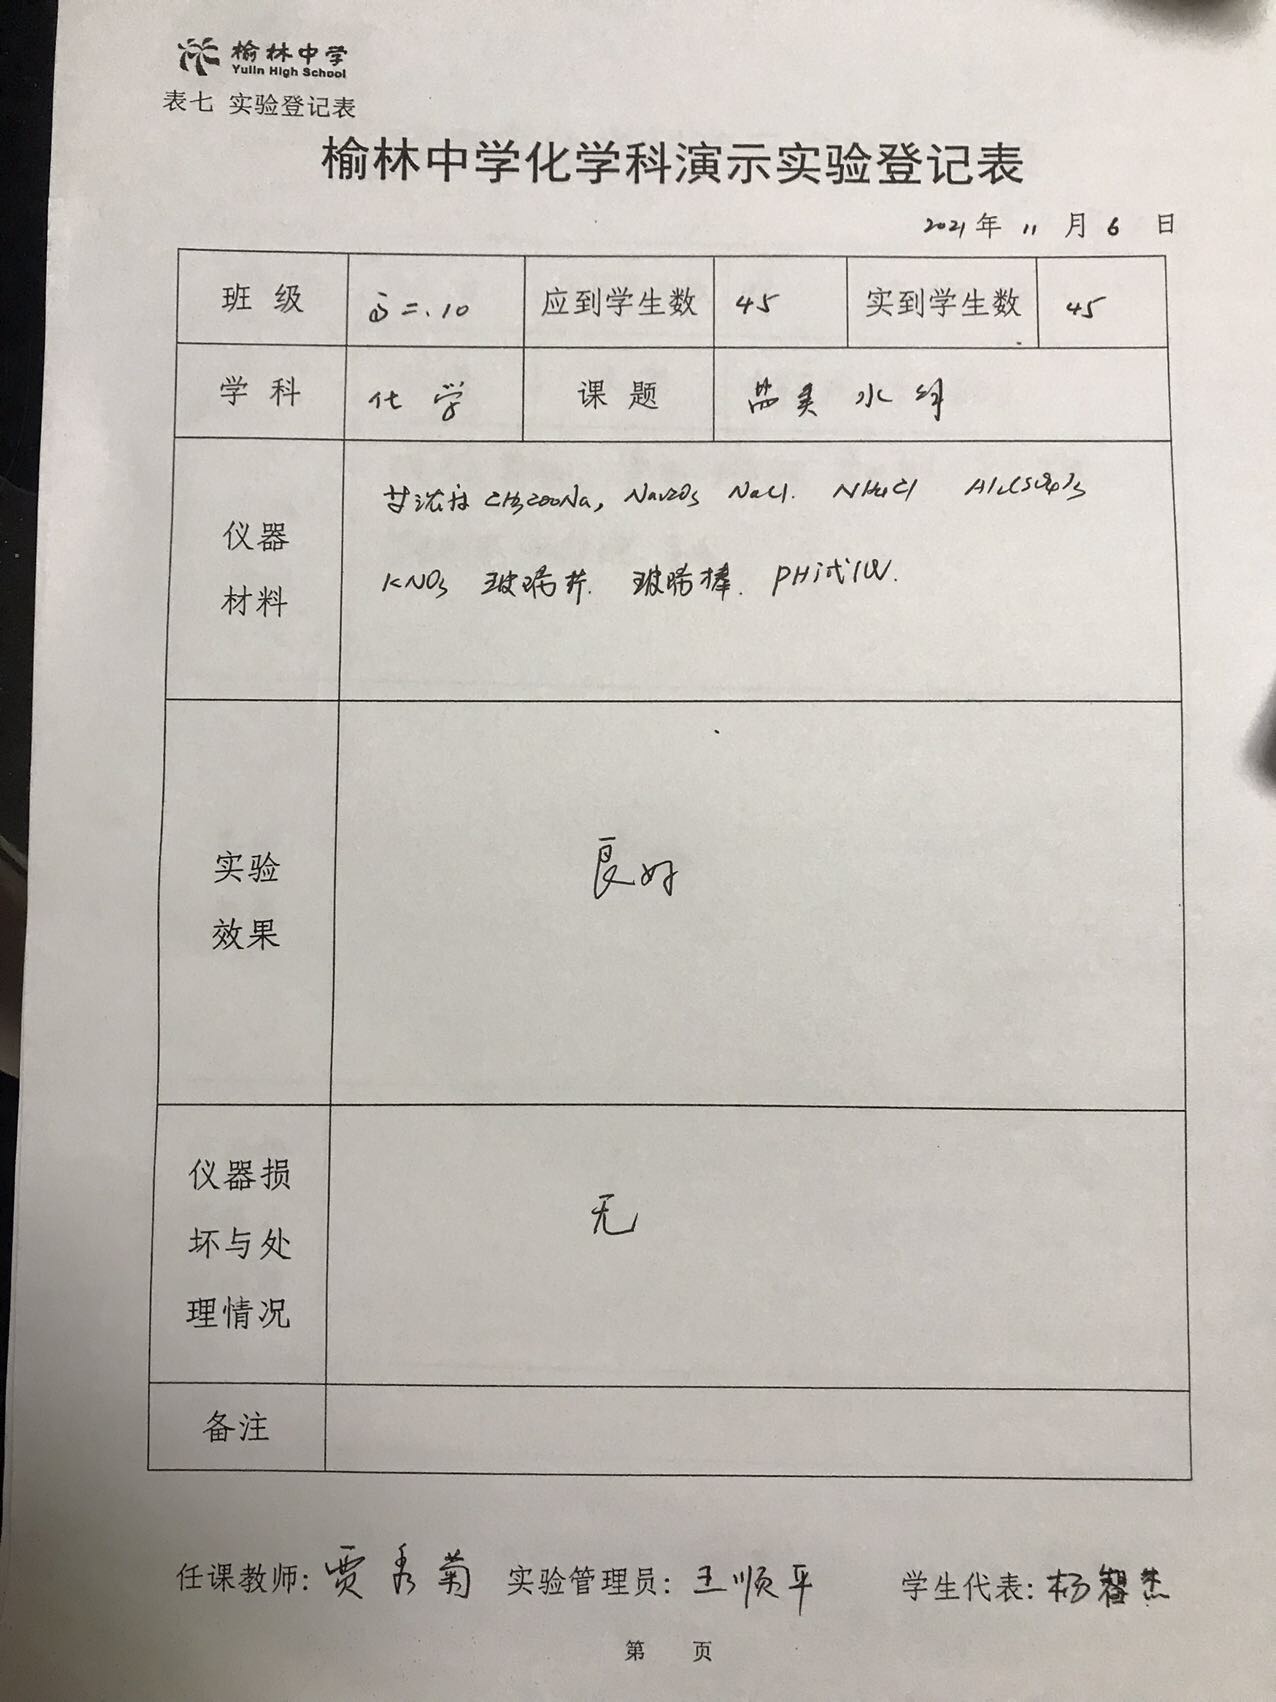 榆林中学
Yulin High School
表七 实验登记表
榆林中学化学科演示实验登记表
2021年 11 月 6 日
班 级 高二.10 应到学生数 45 实到学生数 45
学 科 化 学 课 题 盐类 水解
仪器
材料
CH3COONa, Na2CO3 NaCl. NH4Cl Al2(SO4)3
KNO3 玻璃片. 玻璃棒. PH试纸.
实验
效果
良好
仪器损
坏与处
理情况
无
备注
任课教师: 贾秀菊 实验管理员: 王顺平 学生代表: 杨智杰
第 页